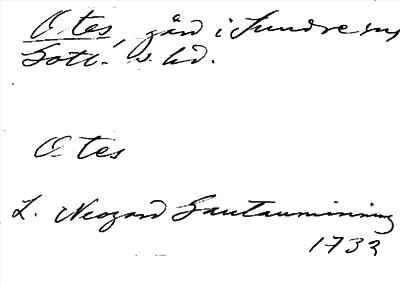 Otes, gård i Sundre sn,
Gotl. s. hd.
Otes
L. Neogard Gautauminning
1732